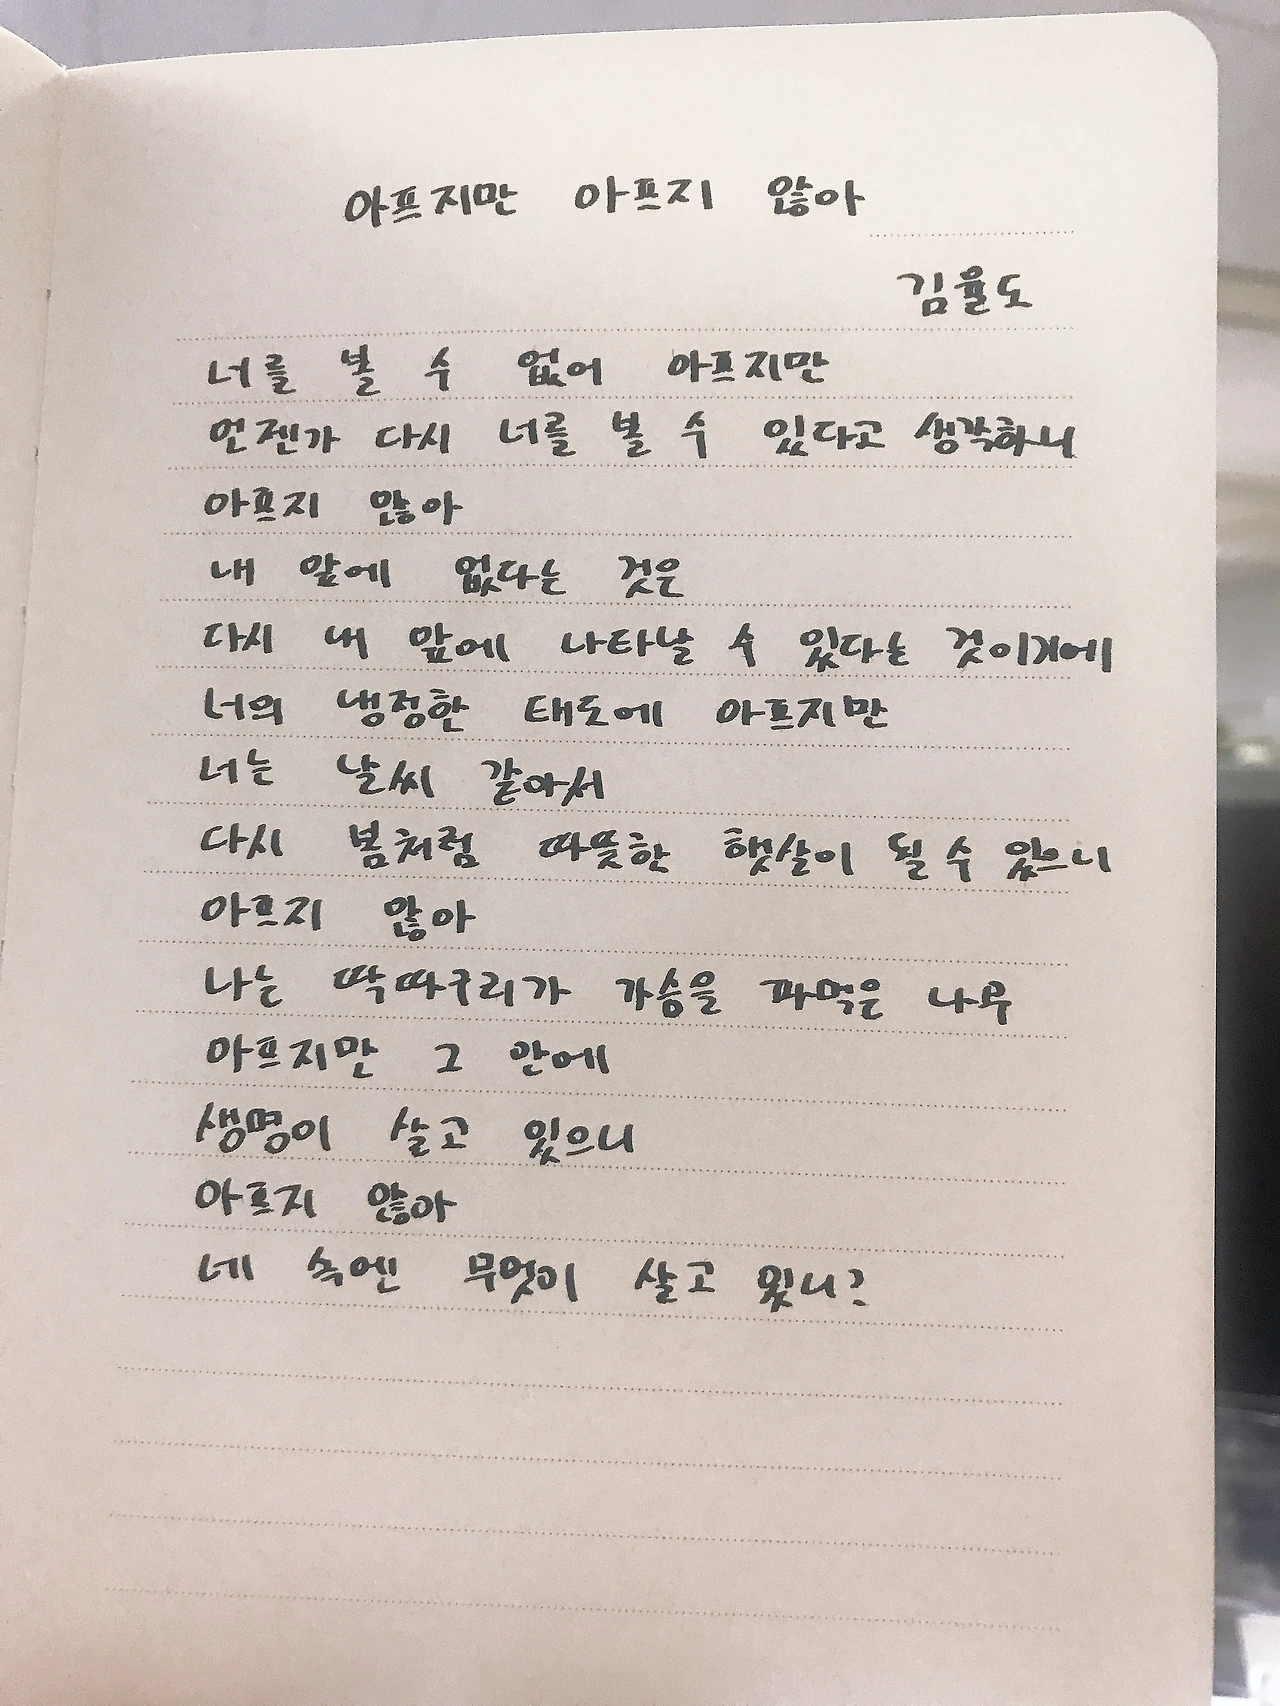 아프지만 아프지 않아
김율도
너를 볼 수 없어 아프지만
언젠가 다시 너를 볼 수 있다고 생각하니
아프지 않아
내 앞에 없다는 것은
다시 내 앞에 나타날 수 있다는 것이기에
너의 냉정한 태도에 아프지만
너는 날씨 같아서
다시 봄처럼 따뜻한 햇살이 될 수 있으니
아프지 않아
나는 딱따구리가 가슴을 파먹은 나무
아프지만 그 안에
생명이 살고 있으니
아프지 않아
네 속엔 무엇이 살고 있니?